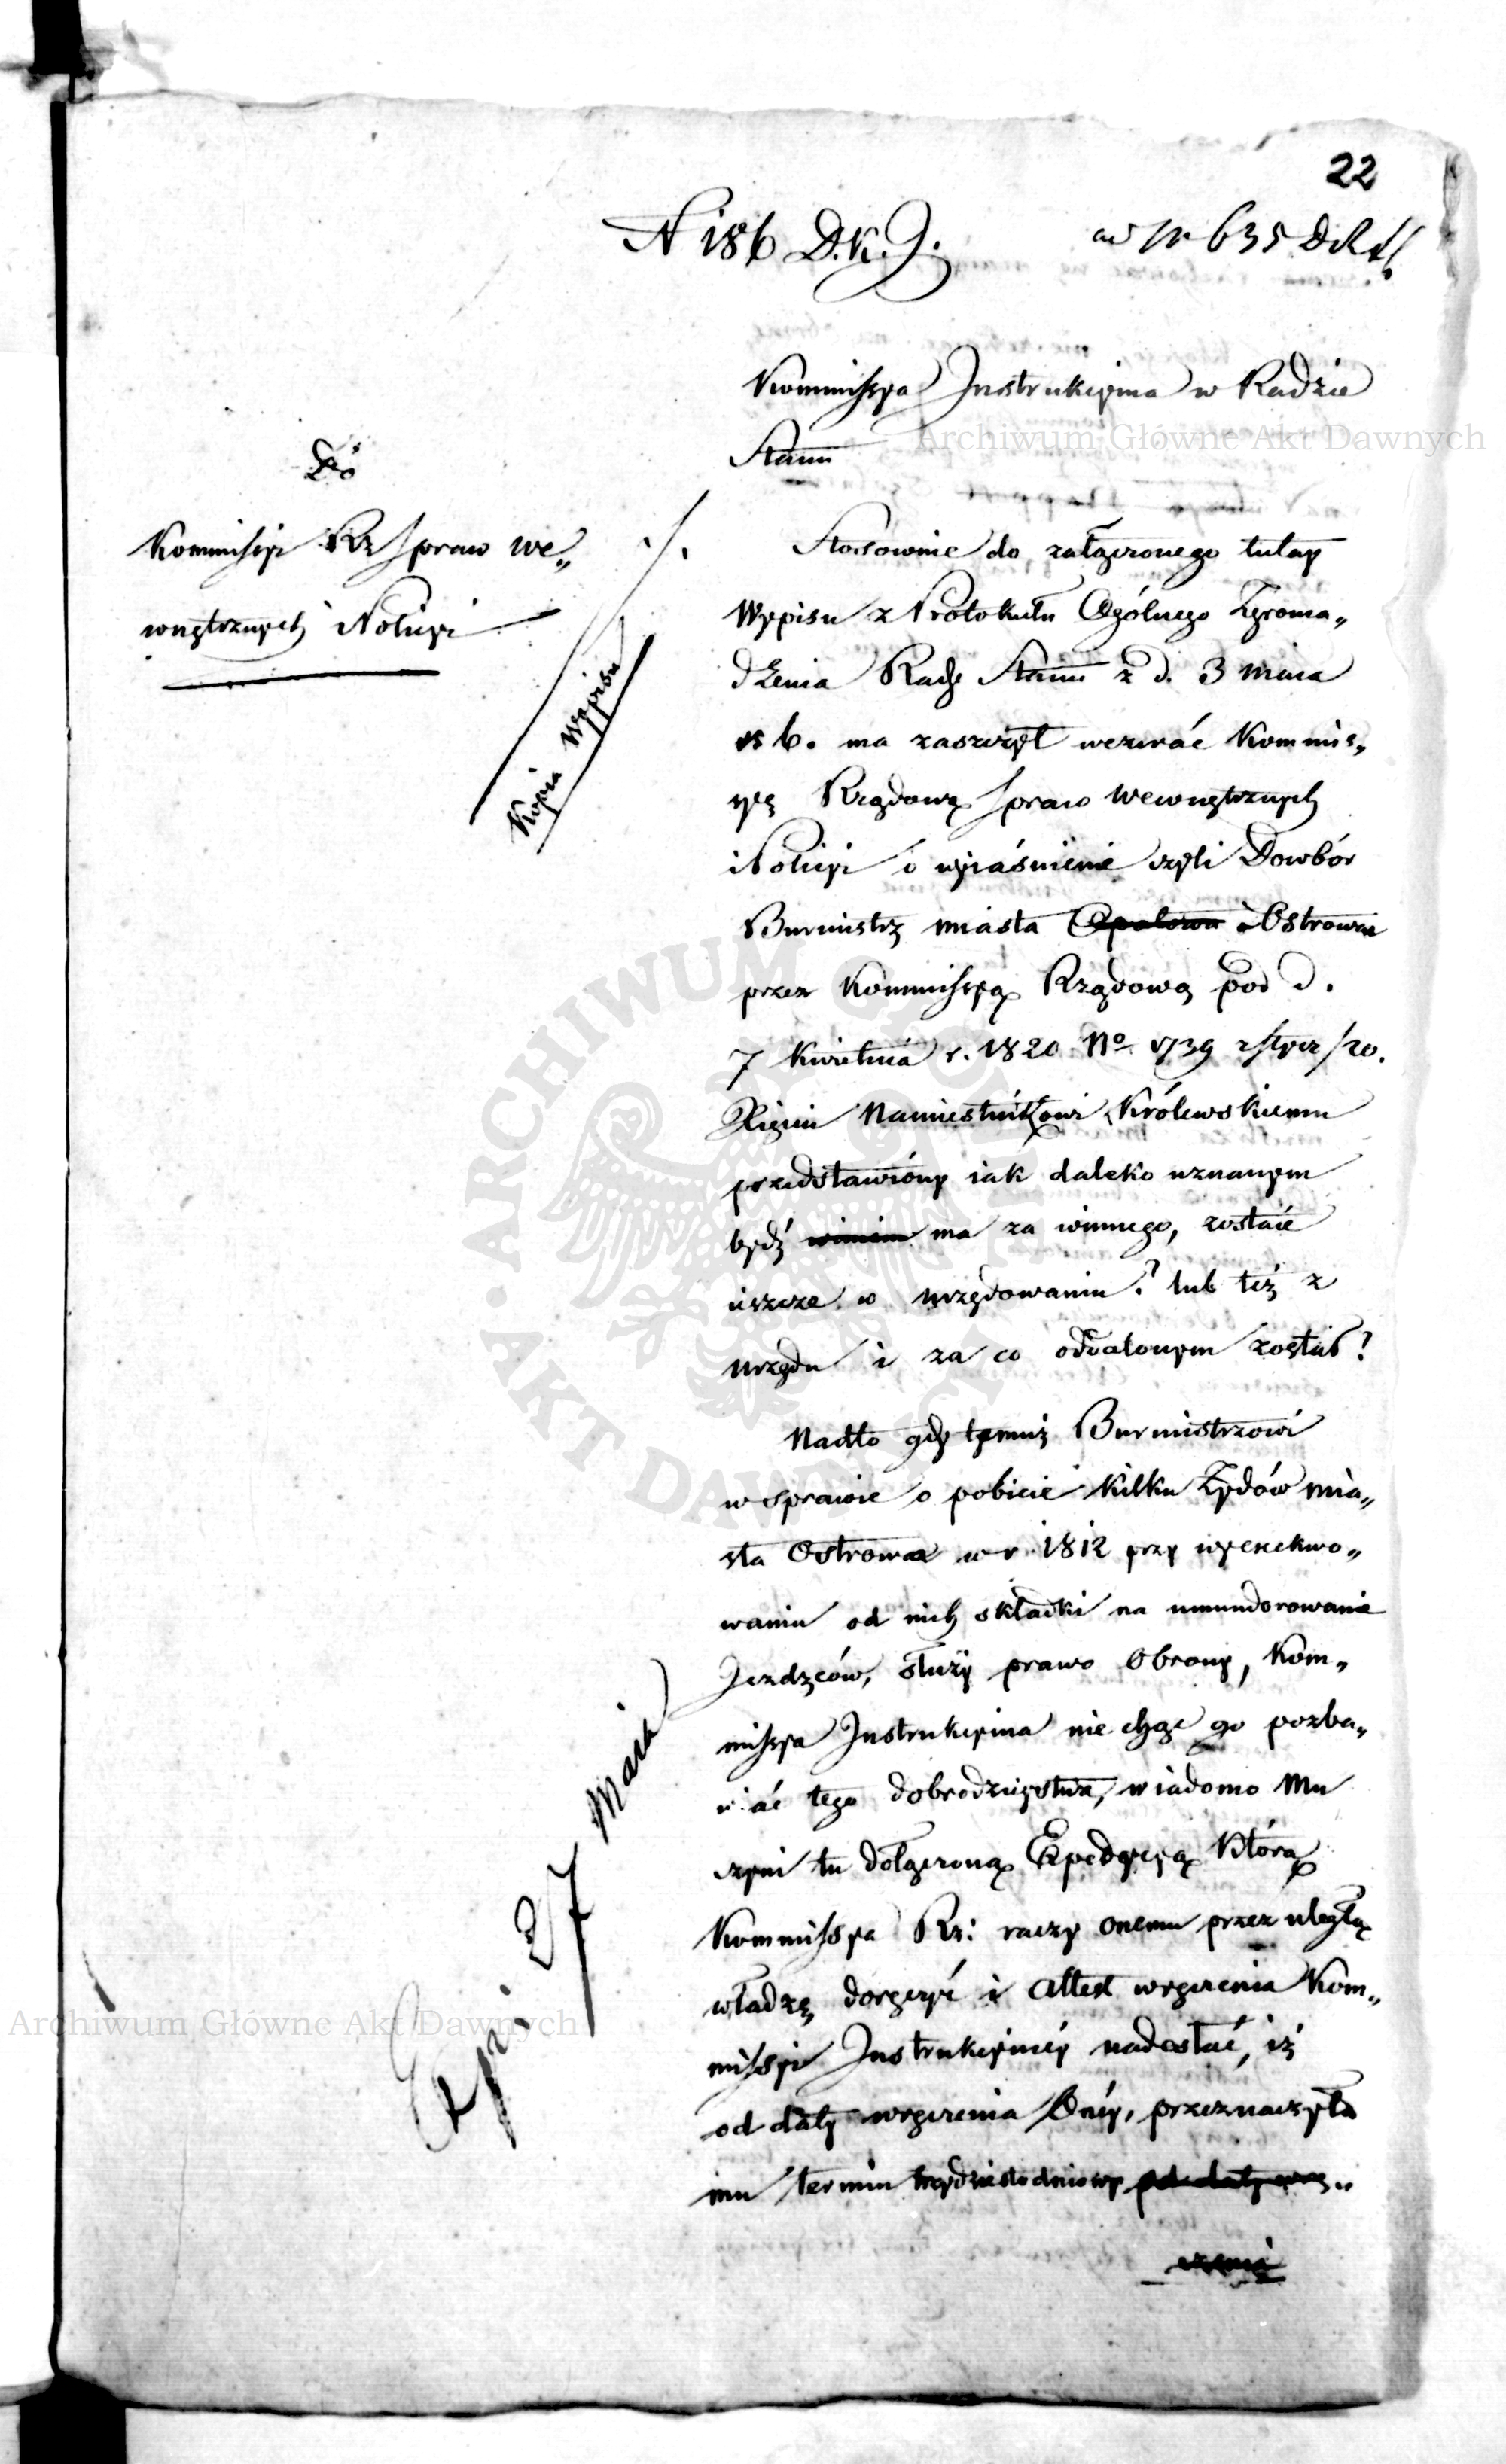 22
N 186 D.K.J.
ad N 635 D.R.
Kommissya Instrukcyina w Radzie
Stanu
Do
Kommissyi Rz Spraw we„
wnętrznych i Policyi
./.
Kopia Wypisu
Stosownie do załączonego tutay
Wypisu z Protokułu Ogólnego Zgroma„
dzenia Rady Stanu z d. 3 maia
r b. ma zaszczyt wezwać Kommis„
syę Rządową Spraw Wewnętrznych
i Policyi o wyiaśnienie czyli Dowbór
Burmistrz miasta Opatowa Ostrowa
przez Kommissyą Rządową pod d.
7 Kwietnia r. 1820 No 1739
Xięciu Namiestnikowi Królewskiemu
przedstawiony iak daleko uznanym
bydź winien ma za winnego, zostaie
ieszcze w urzędowaniu? lub też z
urzędu i za co oddalonym został?
Nadto gdy temuż Burmistrzowi
w sprawie o pobicie kilku Żydów mia„
sta Ostrowa w r 1812 przy wyexekwo„
waniu od nich składki na umundorowanie
Jezdzców, służy prawo Obrony, Kom„
missya Instrukcyina nie chcąc go pozba„
wiać tego dobrodzieystwa, wiadomo Mu
czyni tu dołączoną Expedycyą którą
Kommissya Rz: raczy onemu przez uległą
władzę doręczyć i Attest wręczenia Kom„
missyi Instrukcyinéy nadesłać, iż
od daty wręczenia Onéy, przeznaczyła
mu termin trzydziestodniowy od daty wrę„
czenia
Exp. 27 Maia
Archiwum Główne Akt Dawnych
Archiwum Główne Akt Dawnych
ARCHIWUM GŁÓWNE
AKT DAWNYCH